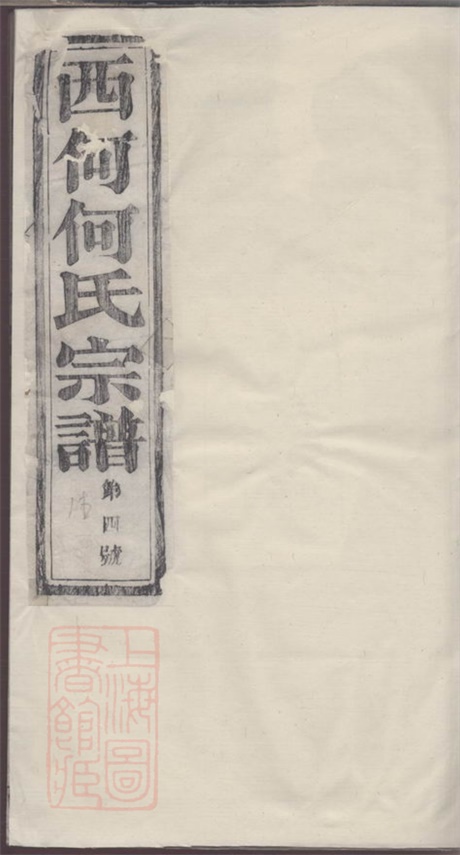 西何何氏宗譜
第四號
上海圖
書館藏